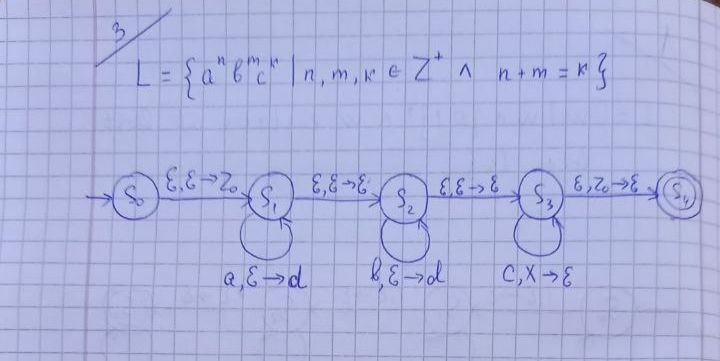 3
L = {aⁿ bᵐ cᵏ | n, m, k ∈ Z⁺ ∧ n + m = k}
S₀ ε,ε→z₀ S₁ ε,ε→ε S₂ ε,ε→ε S₃ ε,z₀→ε S₄
a,ε→d b,ε→d c,X→ε